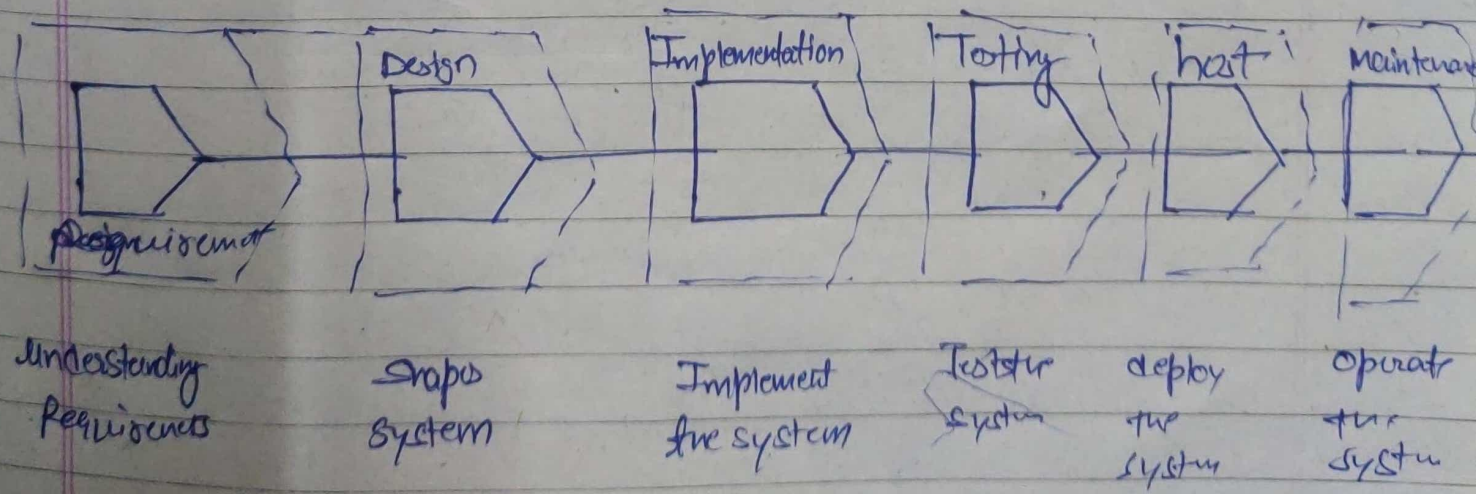 Design
Implementation
Testing
host
Maintenan
Understanding
Requirements
Shapes
System
Implement
the system
Test the
System
deploy
the
system
Operate
the
system